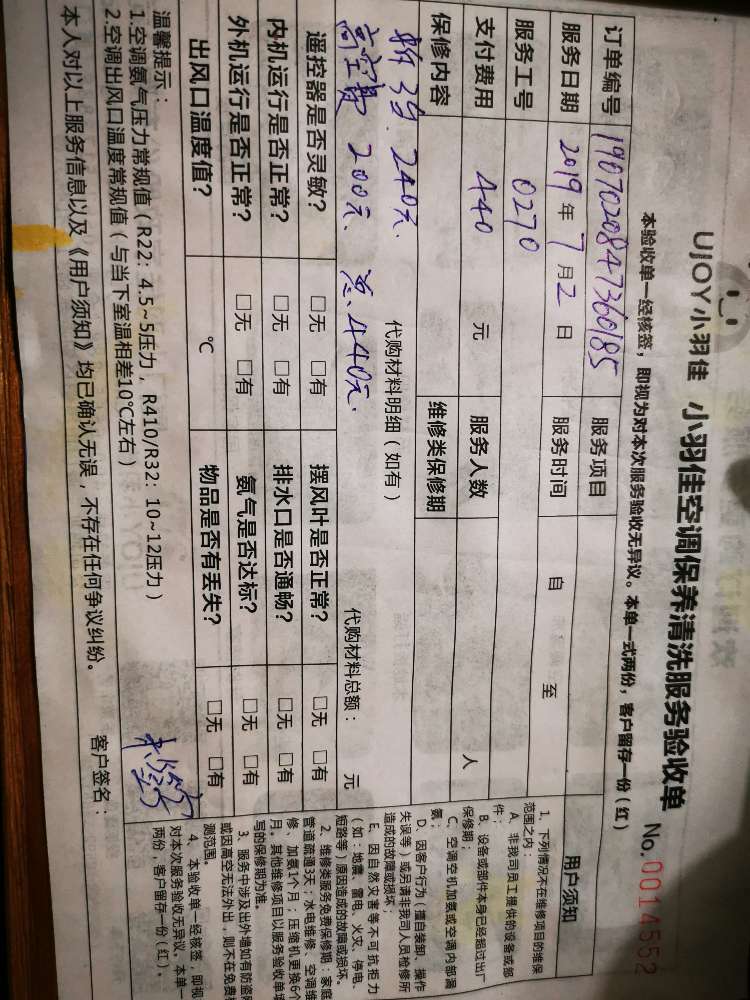 UJOY小羽佳 小羽佳空调保养清洗服务验收单
No.0014552
本验收单一经核签，即视为对本次服务验收无异议。本单一式两份，客户留存一份（红）
订单编号 1907020847360185 服务项目
服务日期 2019年7月2日 服务时间 自 至
服务工号 0270
支付费用 440 元 服务人数 人
保修内容 维修类保修期
代购材料明细（如有） 代购材料总额： 元
240元.
高空费 200元. 总.440元.
遥控器是否灵敏? □无 □有 摆风叶是否正常? □无 □有
内机运行是否正常? □无 □有 排水口是否通畅? □无 □有
外机运行是否正常? □无 □有 氨气是否达标? □无 □有
出风口温度值? ℃ 物品是否有丢失? □无 □有
温馨提示：
1.空调氨气压力常规值（R22：4.5~5压力，R410/R32：10~12压力）
2.空调出风口温度常规值（与当下室温相差10℃左右）
本人对以上服务信息以及《用户须知》均已确认无误，不存在任何争议纠纷。 客户签名：
用户须知
1、下列情况不在维修项目的维保
范围之内：
A、非我司员工提供的设备或部
件；
B、设备或部件本身已经超过出厂
保修期；
C、空调空机加氨或空调内部漏
氨；
D、因客户行为（擅自装卸、操作
失误等）或另请非我司人员检修所
造成的故障或损坏；
E、因自然灾害等不可抗拒力
（如：地震、雷电、火灾、停电、
短路等）原因造成的故障或损坏。
2、维修类服务免费保修期：家庭
管道疏通3天；水电维修、空调维
修、加氨1个月；压缩机更换6个
月。其他维修项目以服务验收单填
写的保修期为准。
3、服务中涉及出外墙如有防盗网
或因高空无法外出，则不在免费检
测范围。
4、本验收单一经核签，即视
对本次服务验收无异议。本单一
两份，客户留存一份（红）。